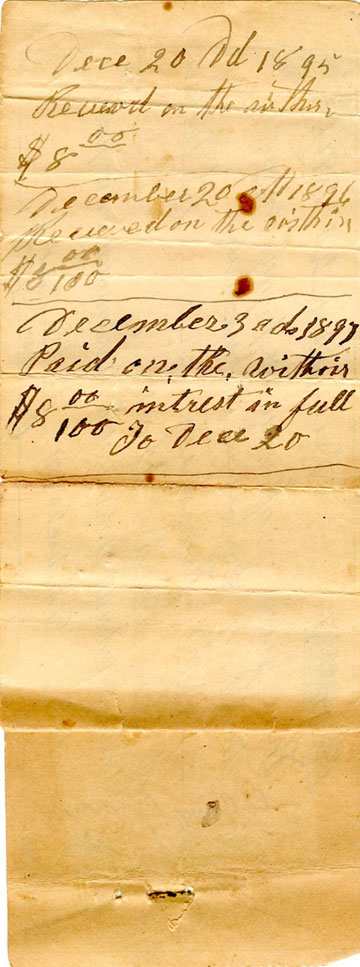 Dece 20 Dd 1895
Receved on the within
$8 00
December 20 1896
Receved on the within
$8 00/100
December 3 ad 1897
Paid on the within
$8 00/100 intrest in full
To Dece 20